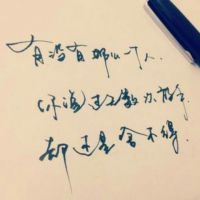 有没有那么一个人.
你说过无数次放弃,
却还是舍不得.